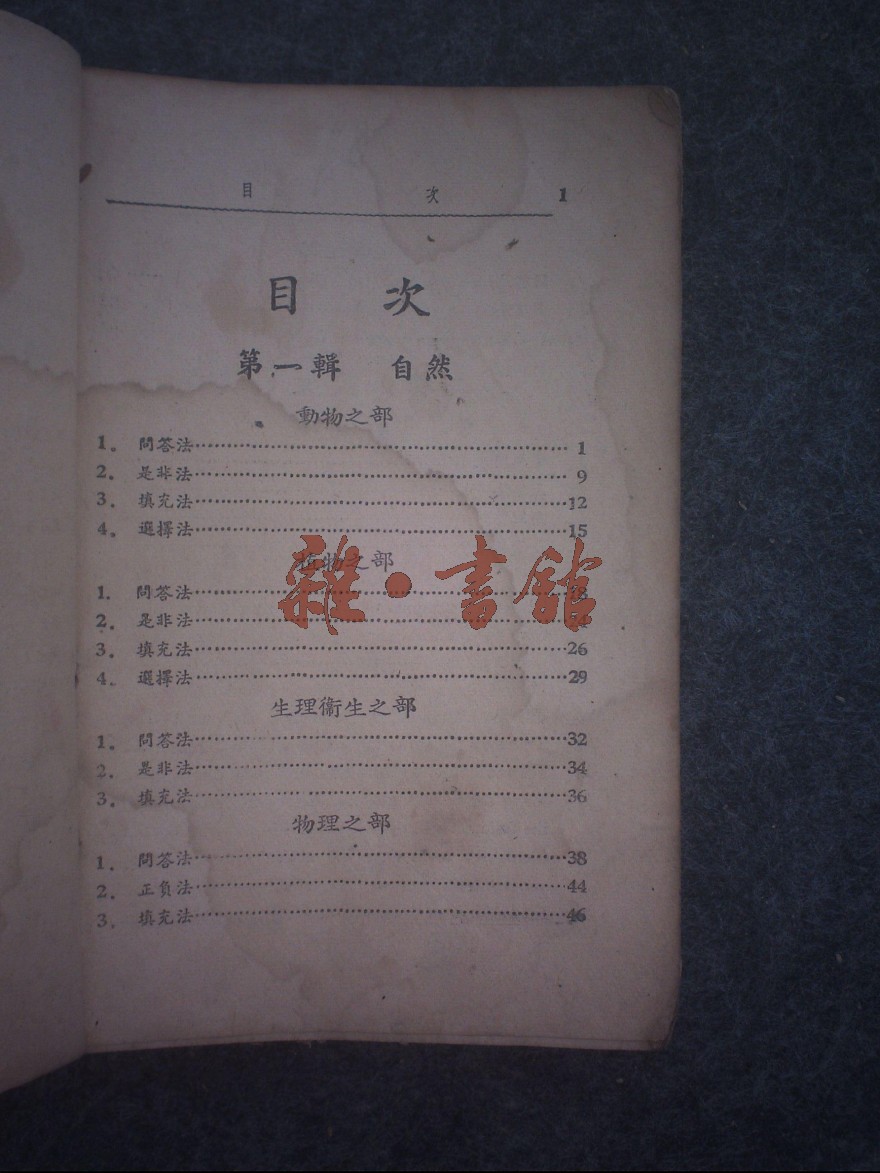 目 次 1
目 次
第一輯 自然
動物之部
1. 問答法 1
2. 是非法 9
3. 填充法 12
4. 選擇法 15
植物之部
1. 問答法 18
2. 是非法 24
3. 填充法 26
4. 選擇法 29
生理衞生之部
1. 問答法 32
2. 是非法 34
3. 填充法 36
物理之部
1. 問答法 38
2. 正負法 44
3. 填充法 46
雜·書館